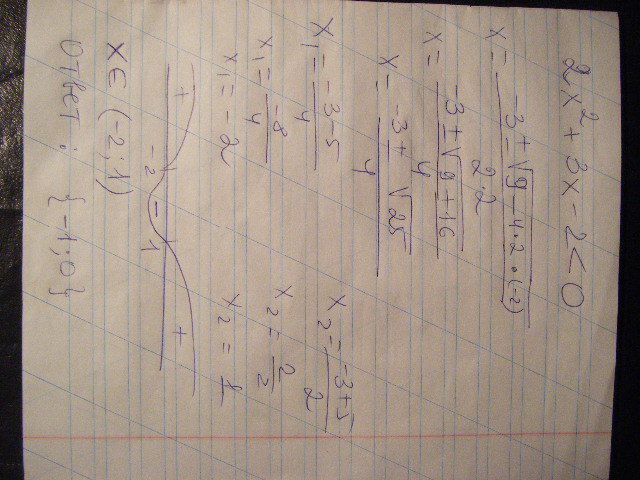 2x² + 3x - 2 < 0
x = (-3 ± √(9 - 4·2·(-2))) / (2·2)
x = (-3 ± √(9 + 16)) / 4
x = (-3 ± √25) / 4
x₁ = (-3 - 5) / 4    x₂ = (-3 + 5) / 2
x₁ = -8 / 4    x₂ = 2 / 2
x₁ = -2    x₂ = 1
+ -2 - 1 +
x ∈ (-2; 1)
Ответ: {-1; 0}